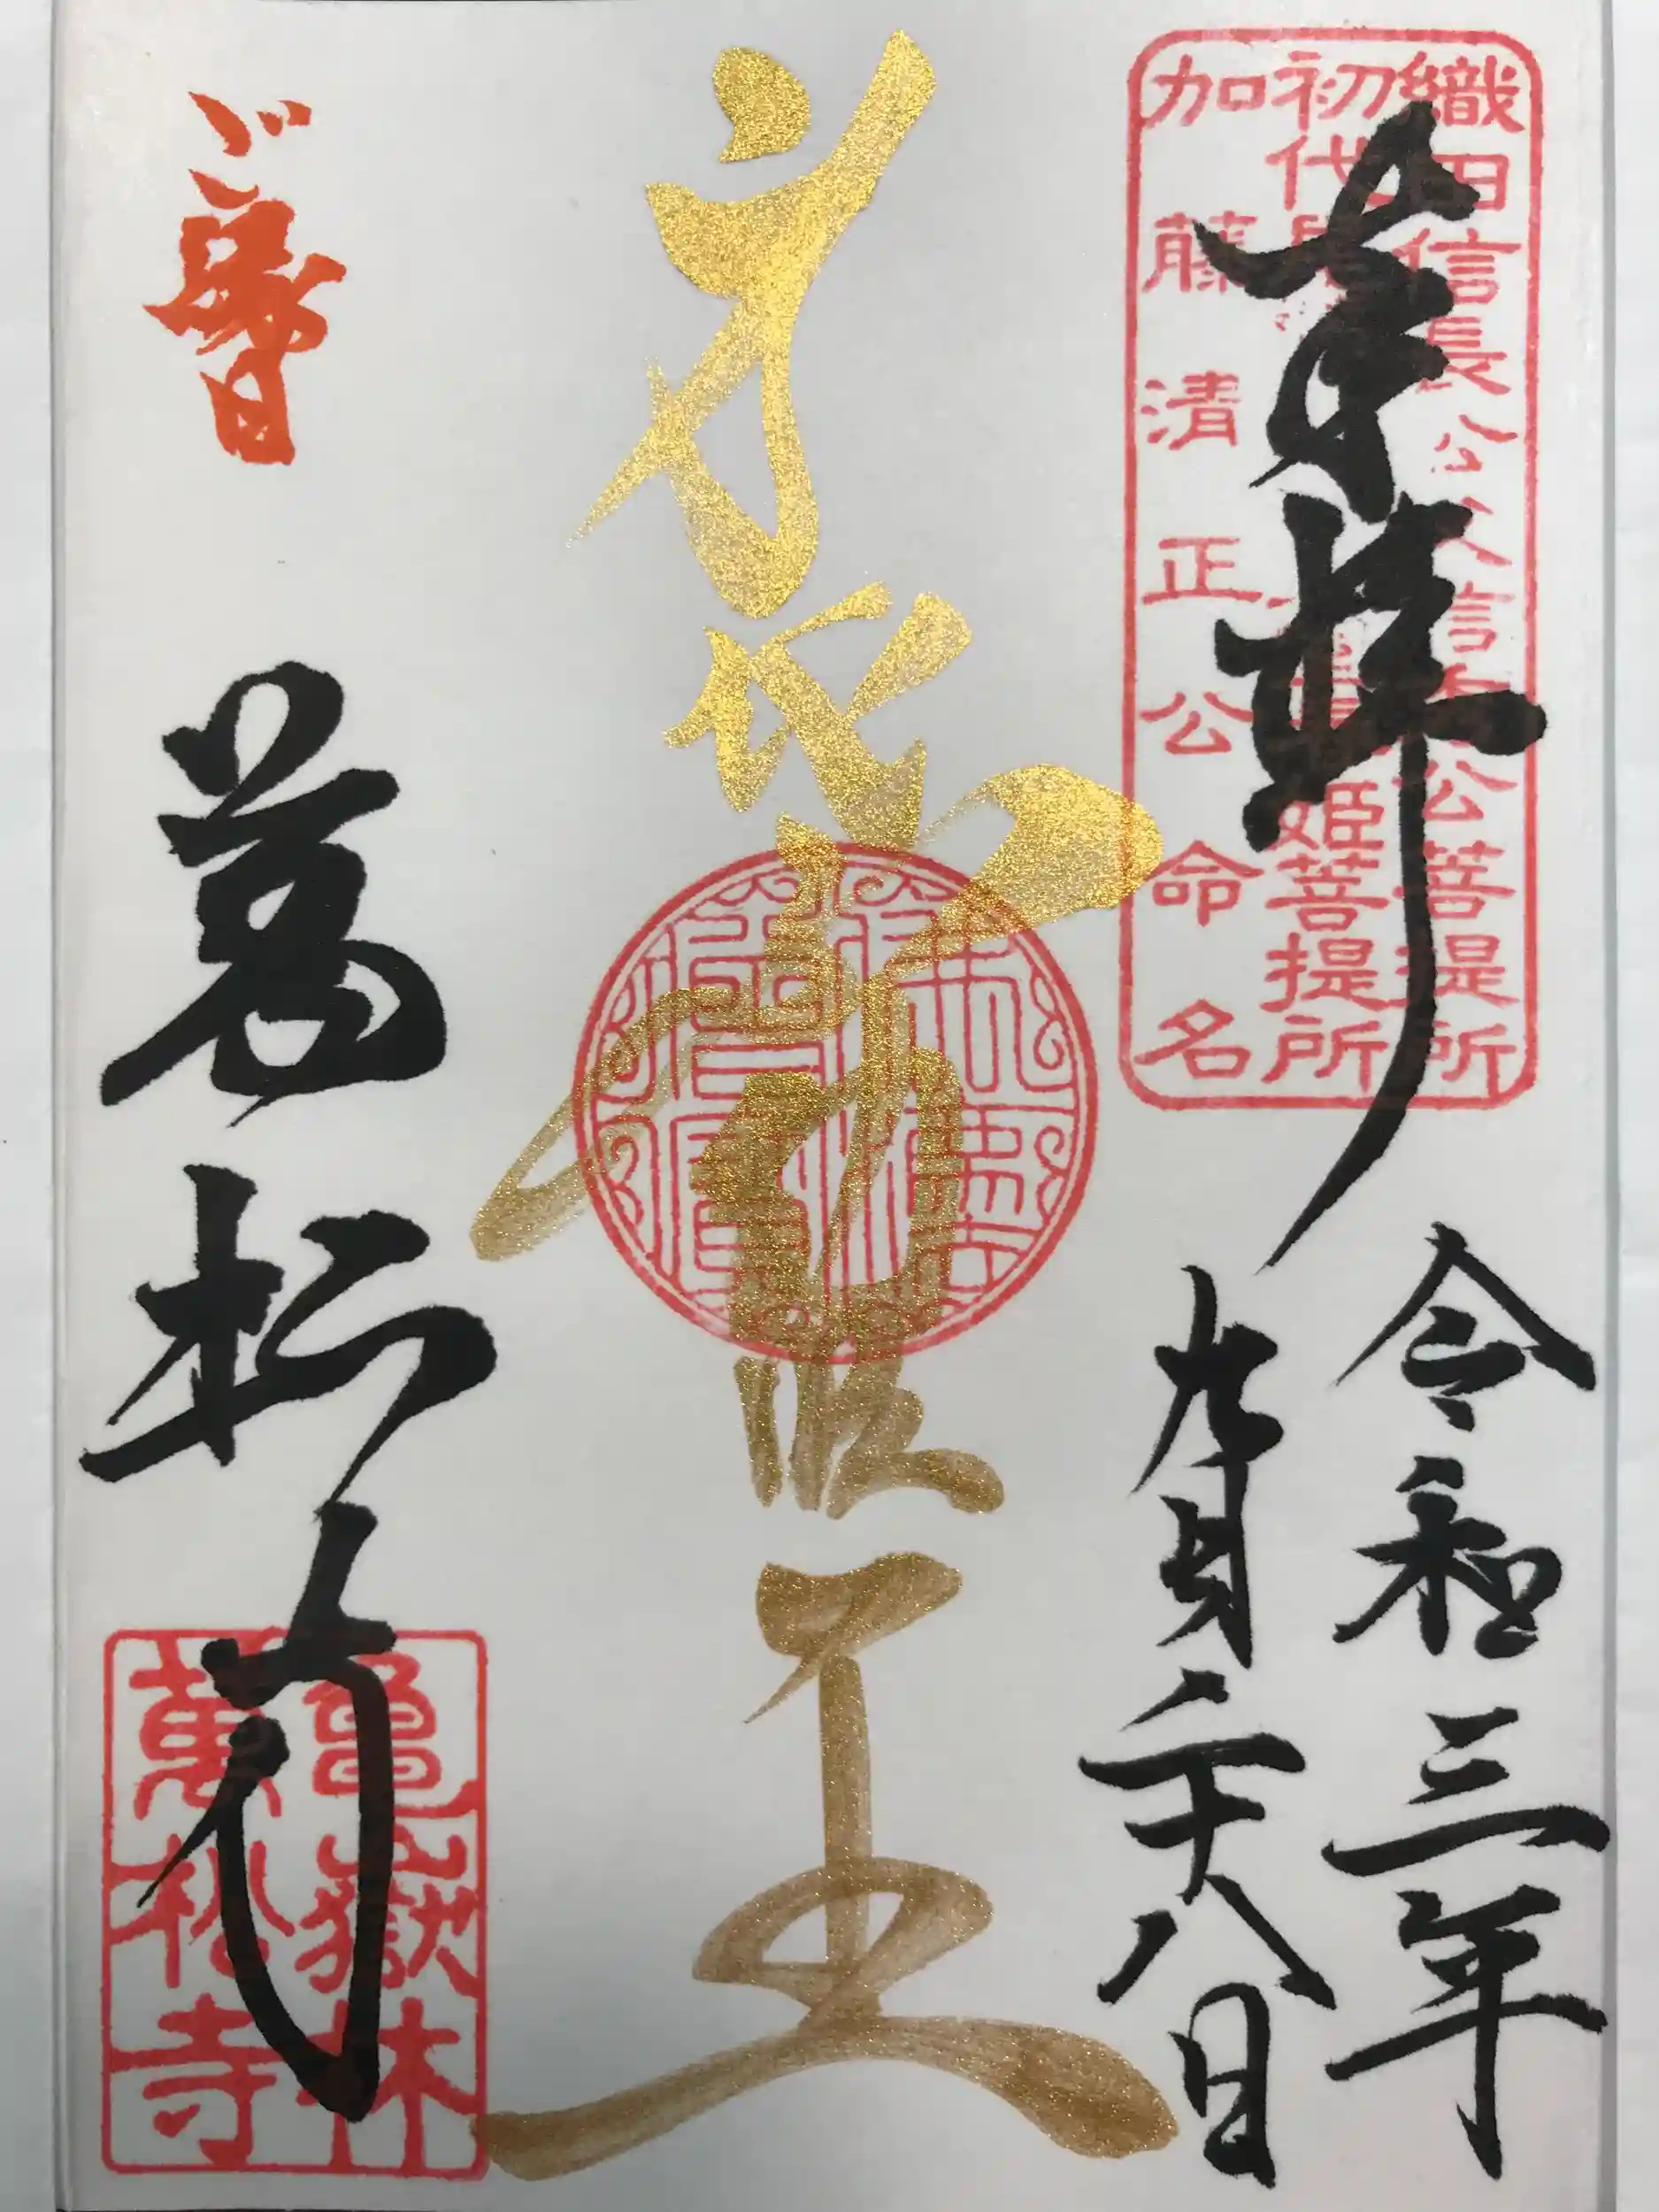 奉拝
織田信長公父信秀公菩提所
初代 姫菩提所
加藤清正公命名
令和三年
九月二十八日
身代不動明王
ご縁日
萬松寺
亀嶽林
萬松寺